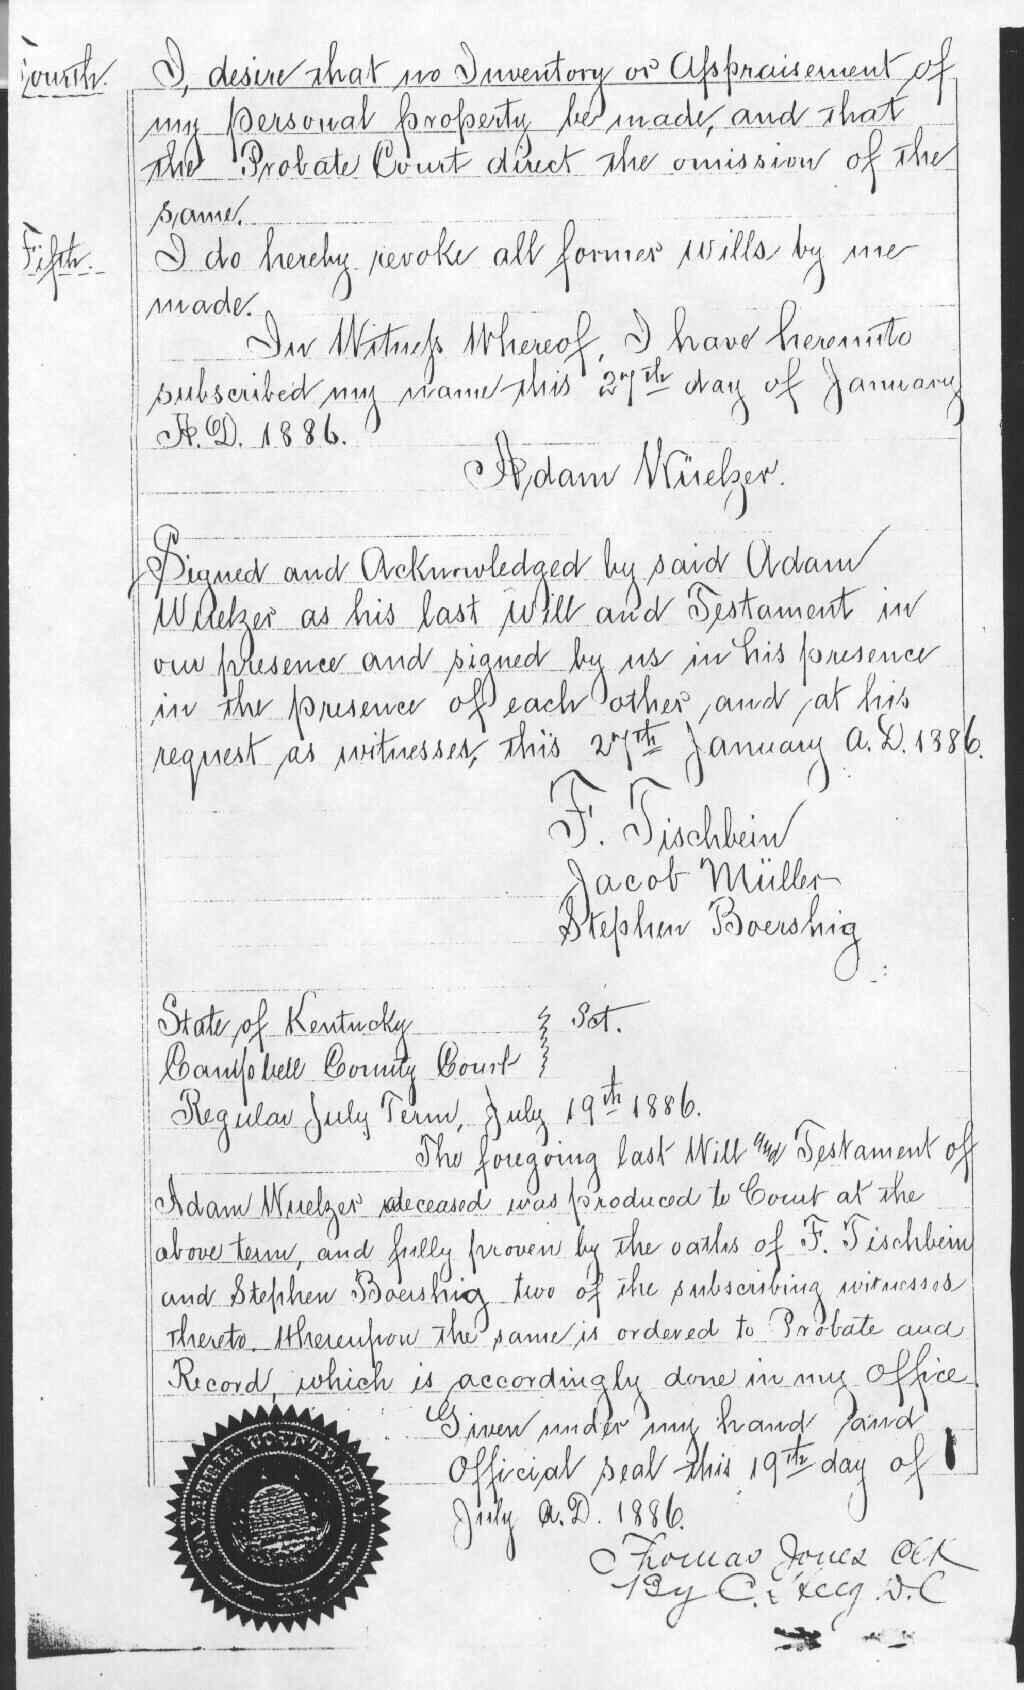 Fourth. I, desire that no Inventory or Appraisement of
my personal property be made, and that
the Probate Court direct the omission of the
same.
Fifth. I do hereby revoke all former Wills by me
made.
In Witness Whereof, I have hereunto
subscribed my name this 27th day of January
A.D. 1886.
Adam Wüelzer.
Signed and Acknowledged by said Adam
Wuelzer as his last Will and Testament in
our presence and signed by us in his presence
in the presence of each other, and at his
request as witnesses, this 27th January A.D. 1886.
F. Tischbein
Jacob Müller
Stephen Boershig
State of Kentucky } Sct.
Campbell County Court
Regular July Term, July 19th 1886.
The foregoing last Will and Testament of
Adam Wuelzer deceased was produced to Court at the
above term, and fully proven by the oaths of F. Tischbein
and Stephen Boershig two of the subscribing witnesses
thereto. Whereupon the same is ordered to Probate and
Record, which is accordingly done in my Office.
Given under my hand and
Official seal this 19th day of
July A.D. 1886.
Thomas Jones Clk
By C. D.C
CAMPBELL COUNTY SEAL
KY.